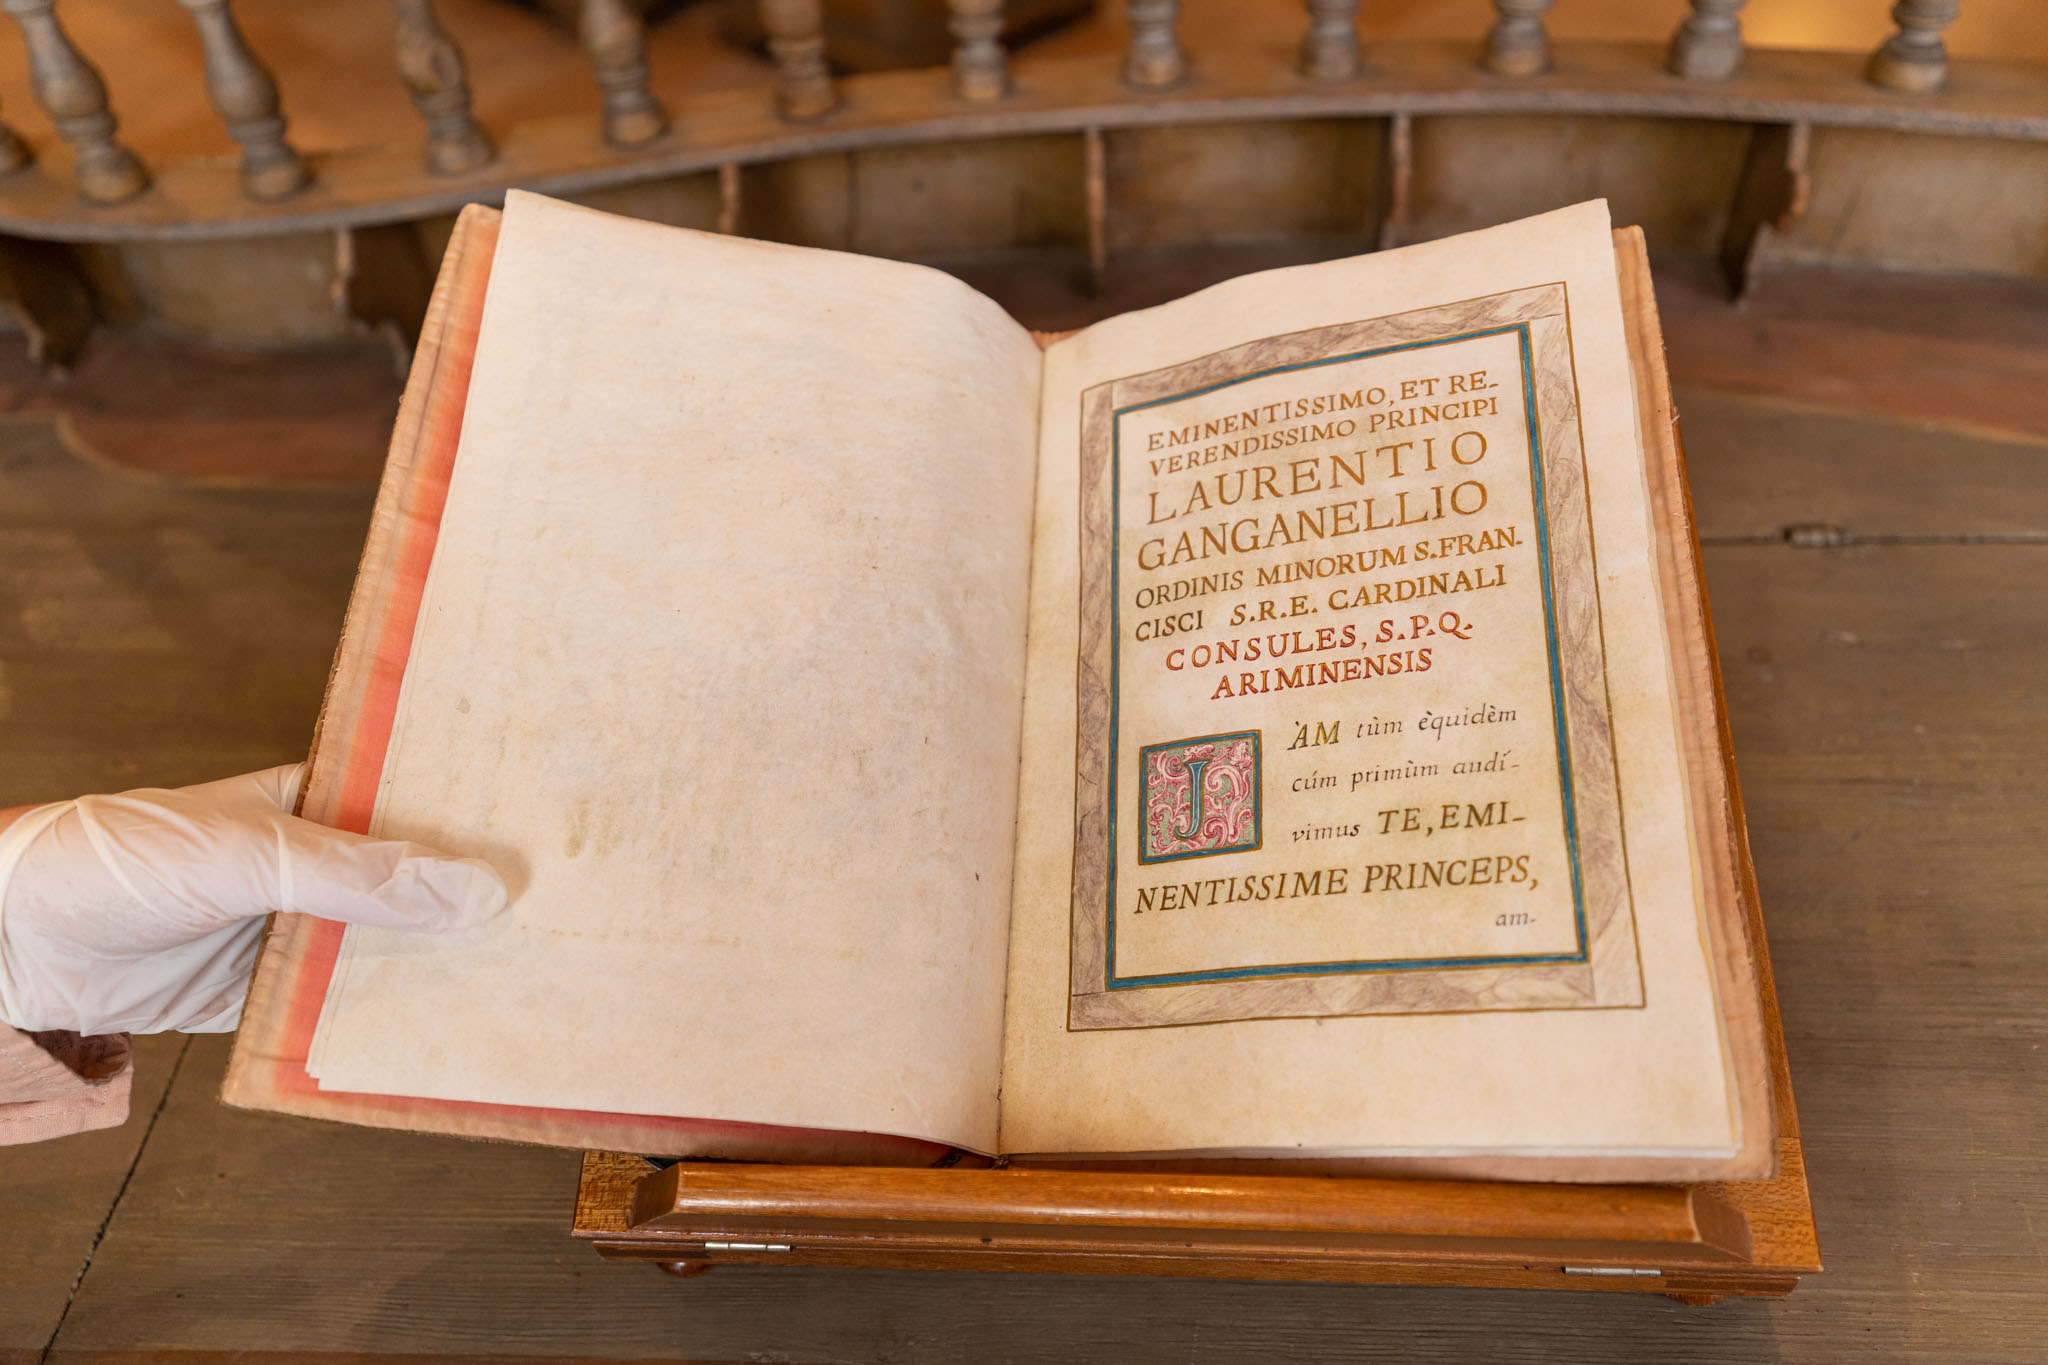 EMINENTISSIMO, ET RE-
VERENDISSIMO PRINCIPI
LAURENTIO
GANGANELLIO
ORDINIS MINORUM S. FRAN-
CISCI S.R.E. CARDINALI
CONSULES, S.P.Q.
ARIMINENSIS
J̀AM tùm èquidèm
cúm primùm audí-
vimus TE, EMI-
NENTISSIME PRINCEPS,
am-